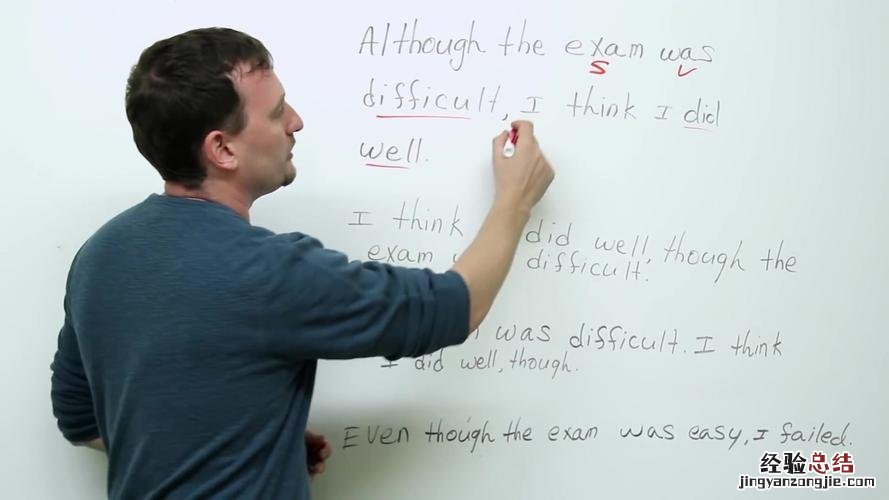 Although the exam was
S V
difficult, I think I did
well.
I think did well, though the
exam difficult.
was difficult. I think
I did well, though.
Even though the exam was easy, I failed.
经验总结
jingyanzongjie.com